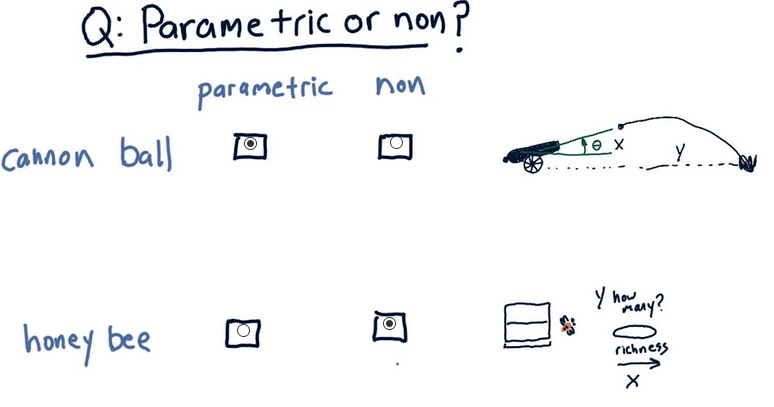 Q: Parametric or non?
parametric non
cannon ball
θ X Y
honey bee
Y how many?
richness
X